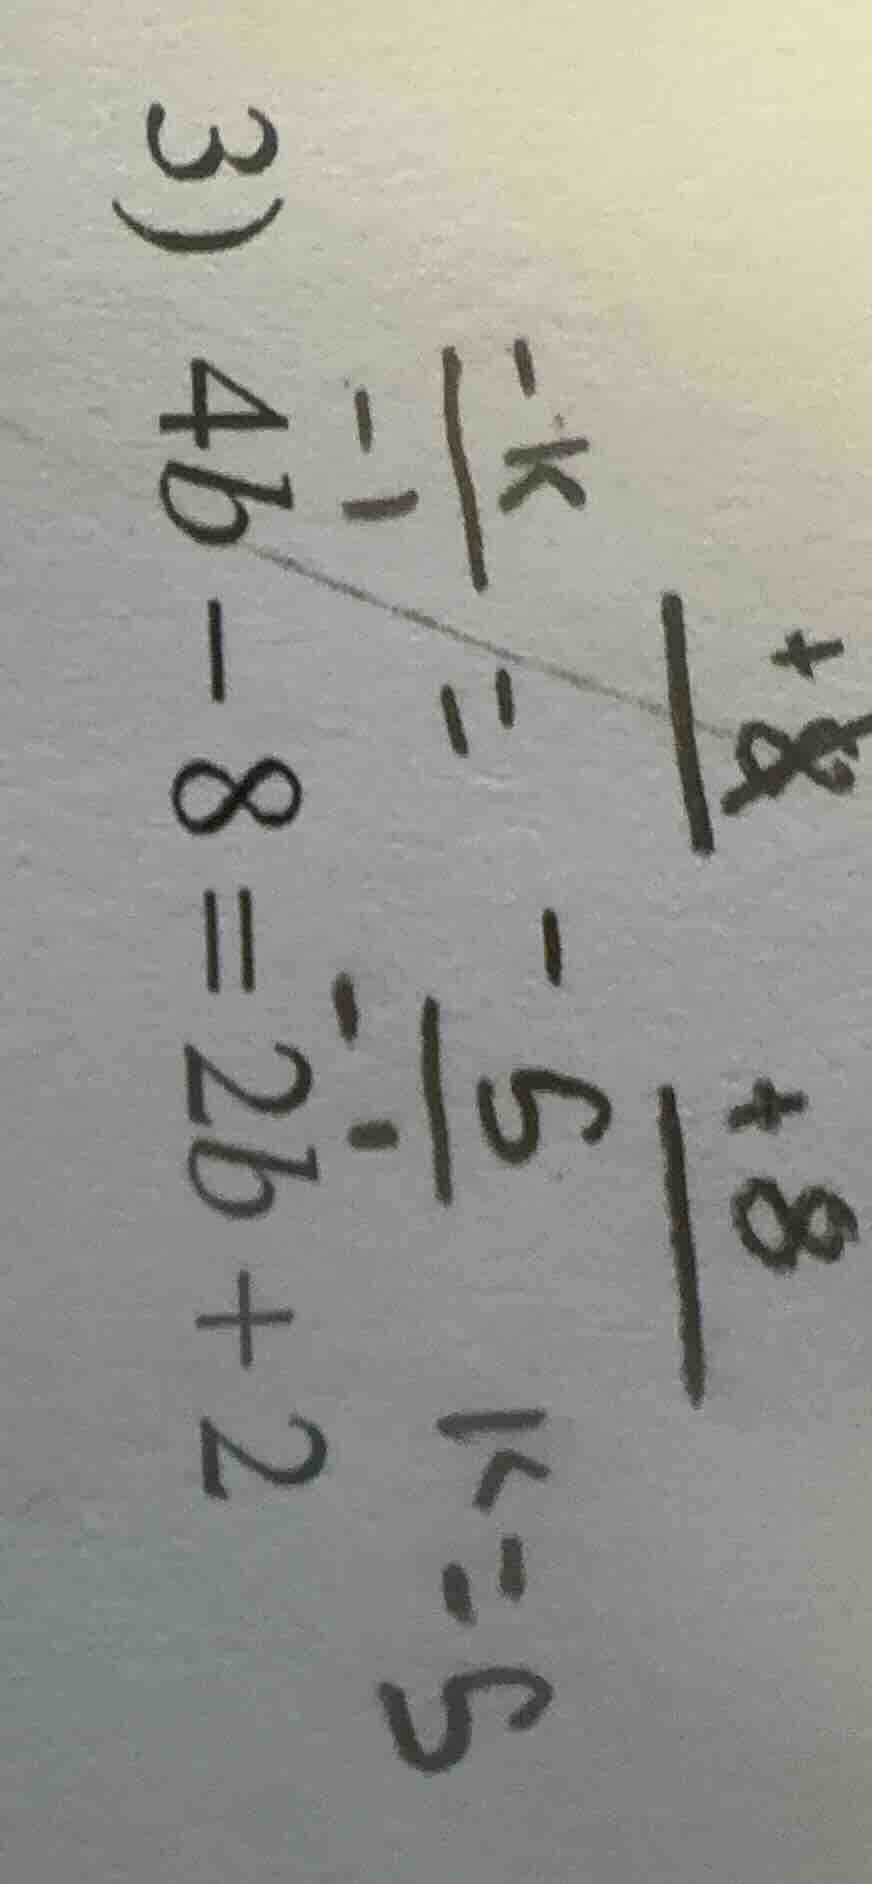 + 8 + 8
-k = -5 k = 5
-1 -1
3) 4b − 8 = 2b + 2